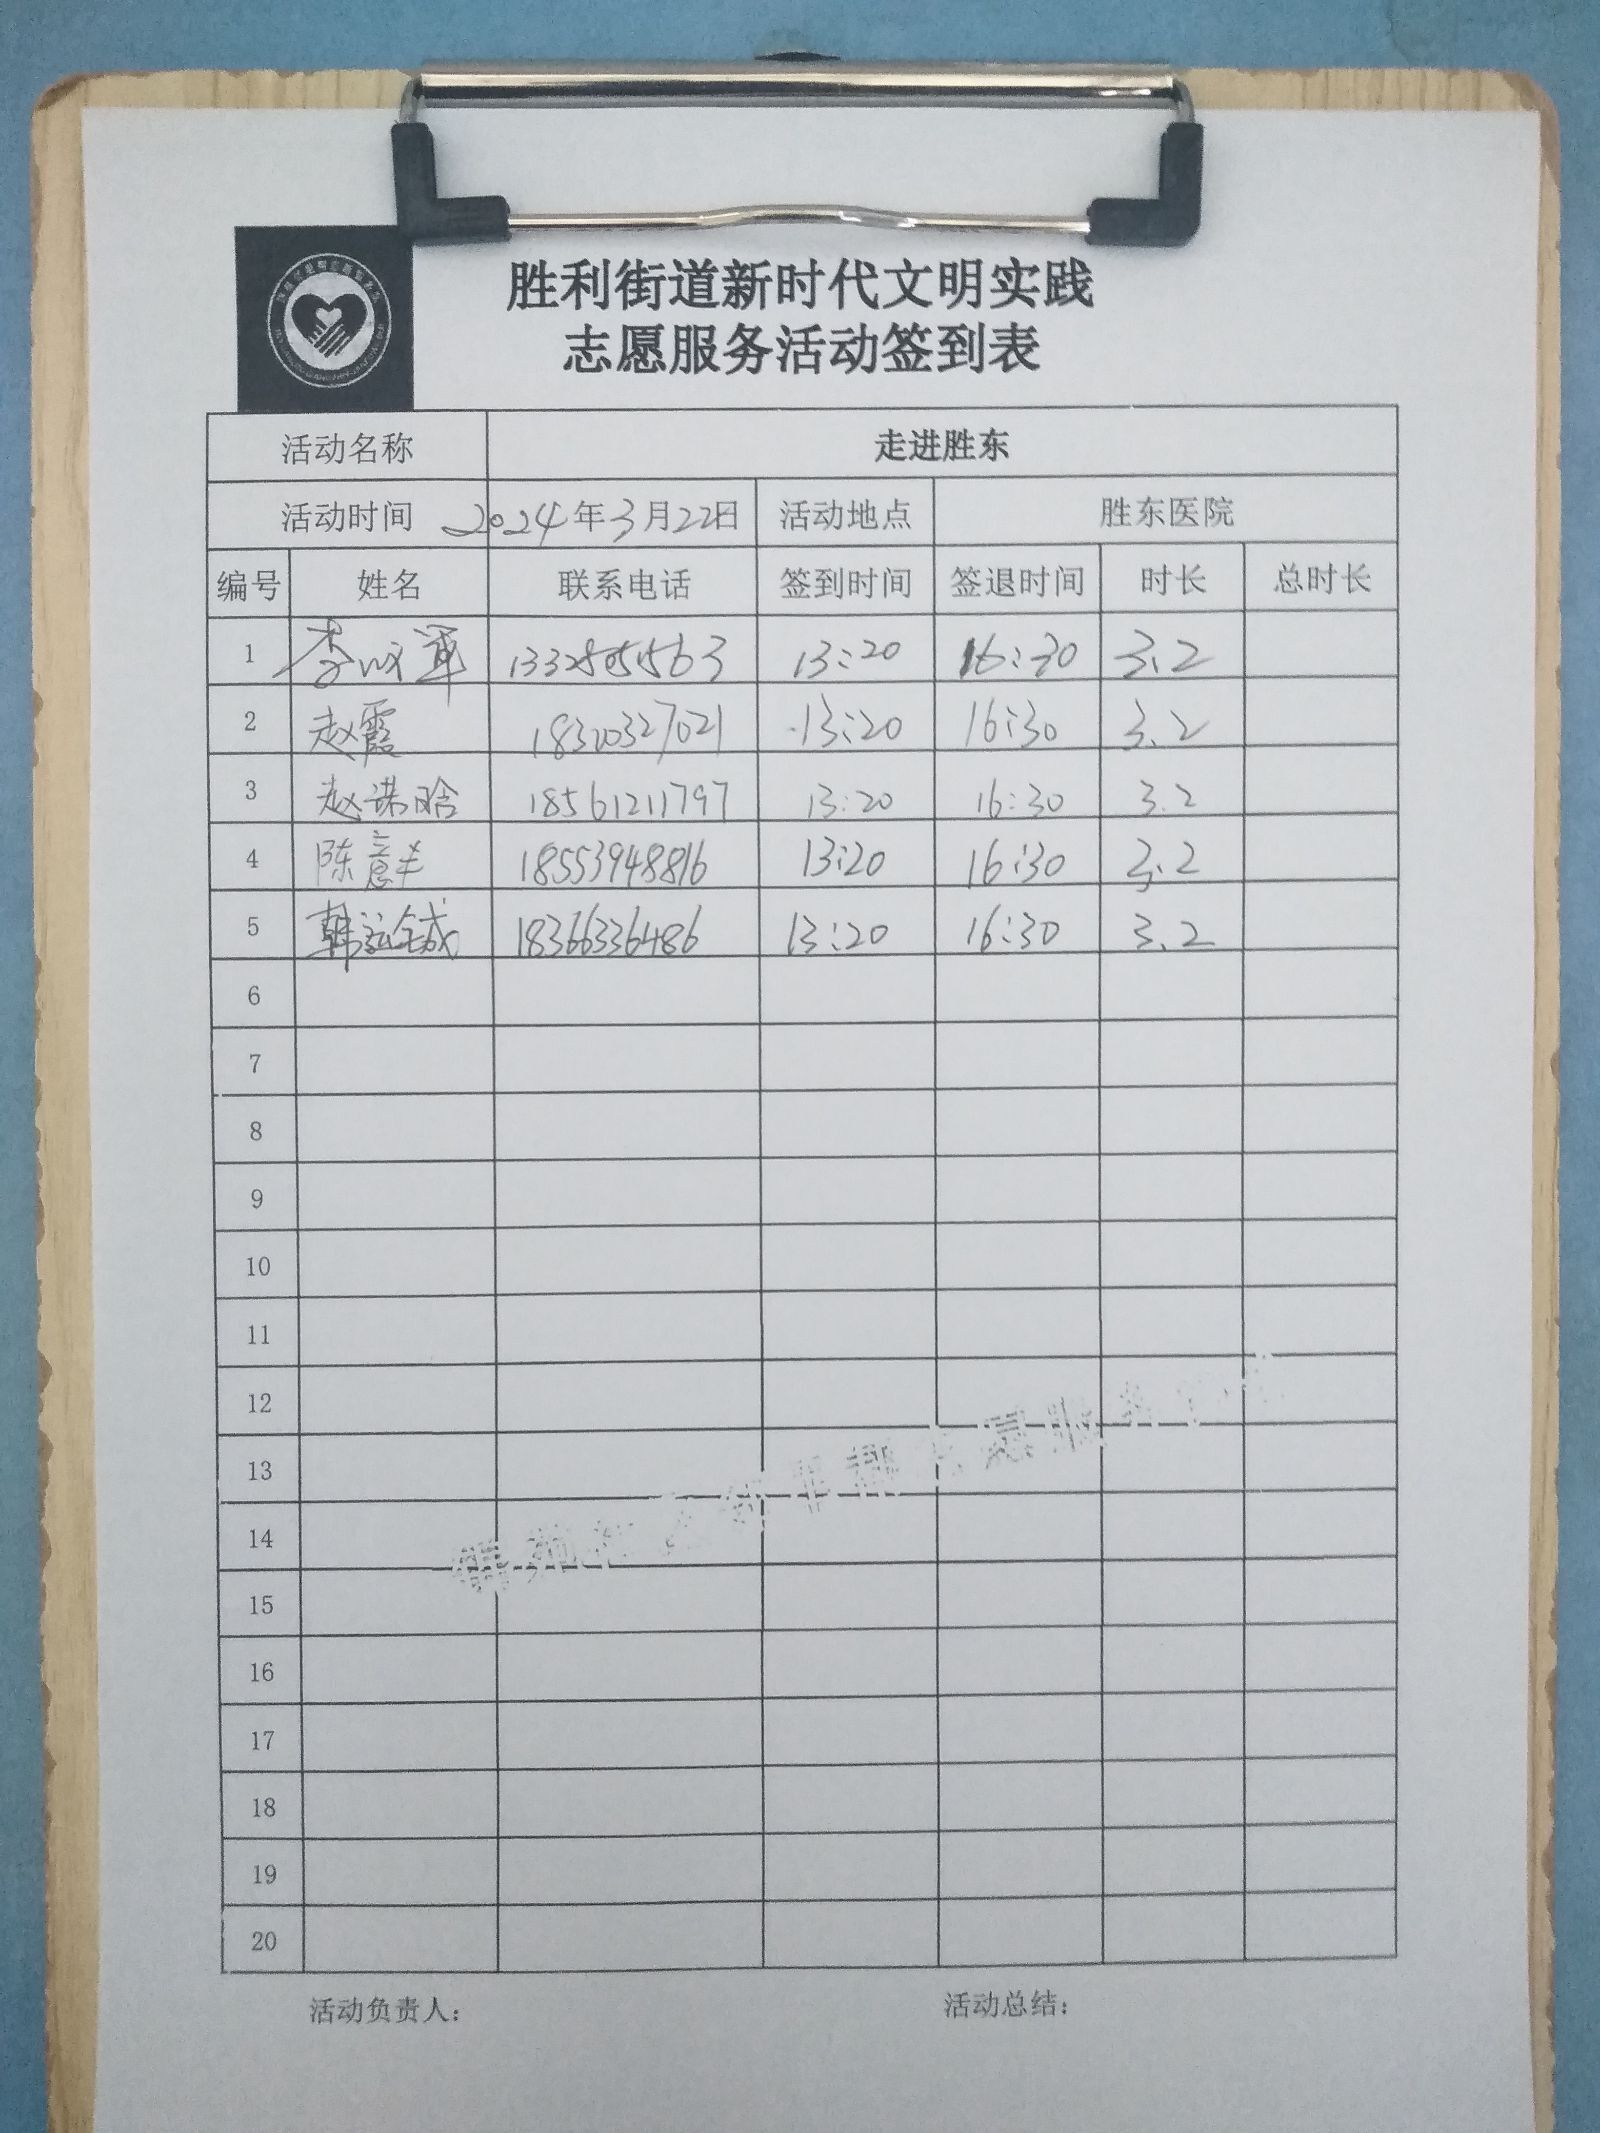 胜利街道新时代文明实践
志愿服务活动签到表
活动名称 走进胜东
活动时间 2024年3月22日 活动地点 胜东医院
编号 姓名 联系电话 签到时间 签退时间 时长 总时长
1 13:20 16:30 3.2
2 赵霞 18320327021 13:20 16:30 3.2
3 赵诺晗 18561211797 13:20 16:30 3.2
4 陈意羊 18553948816 13:20 16:30 3.2
5 18366336486 13:20 16:30 3.2
6
7
8
9
10
11
12
13
14
15
16
17
18
19
20
活动负责人： 活动总结：